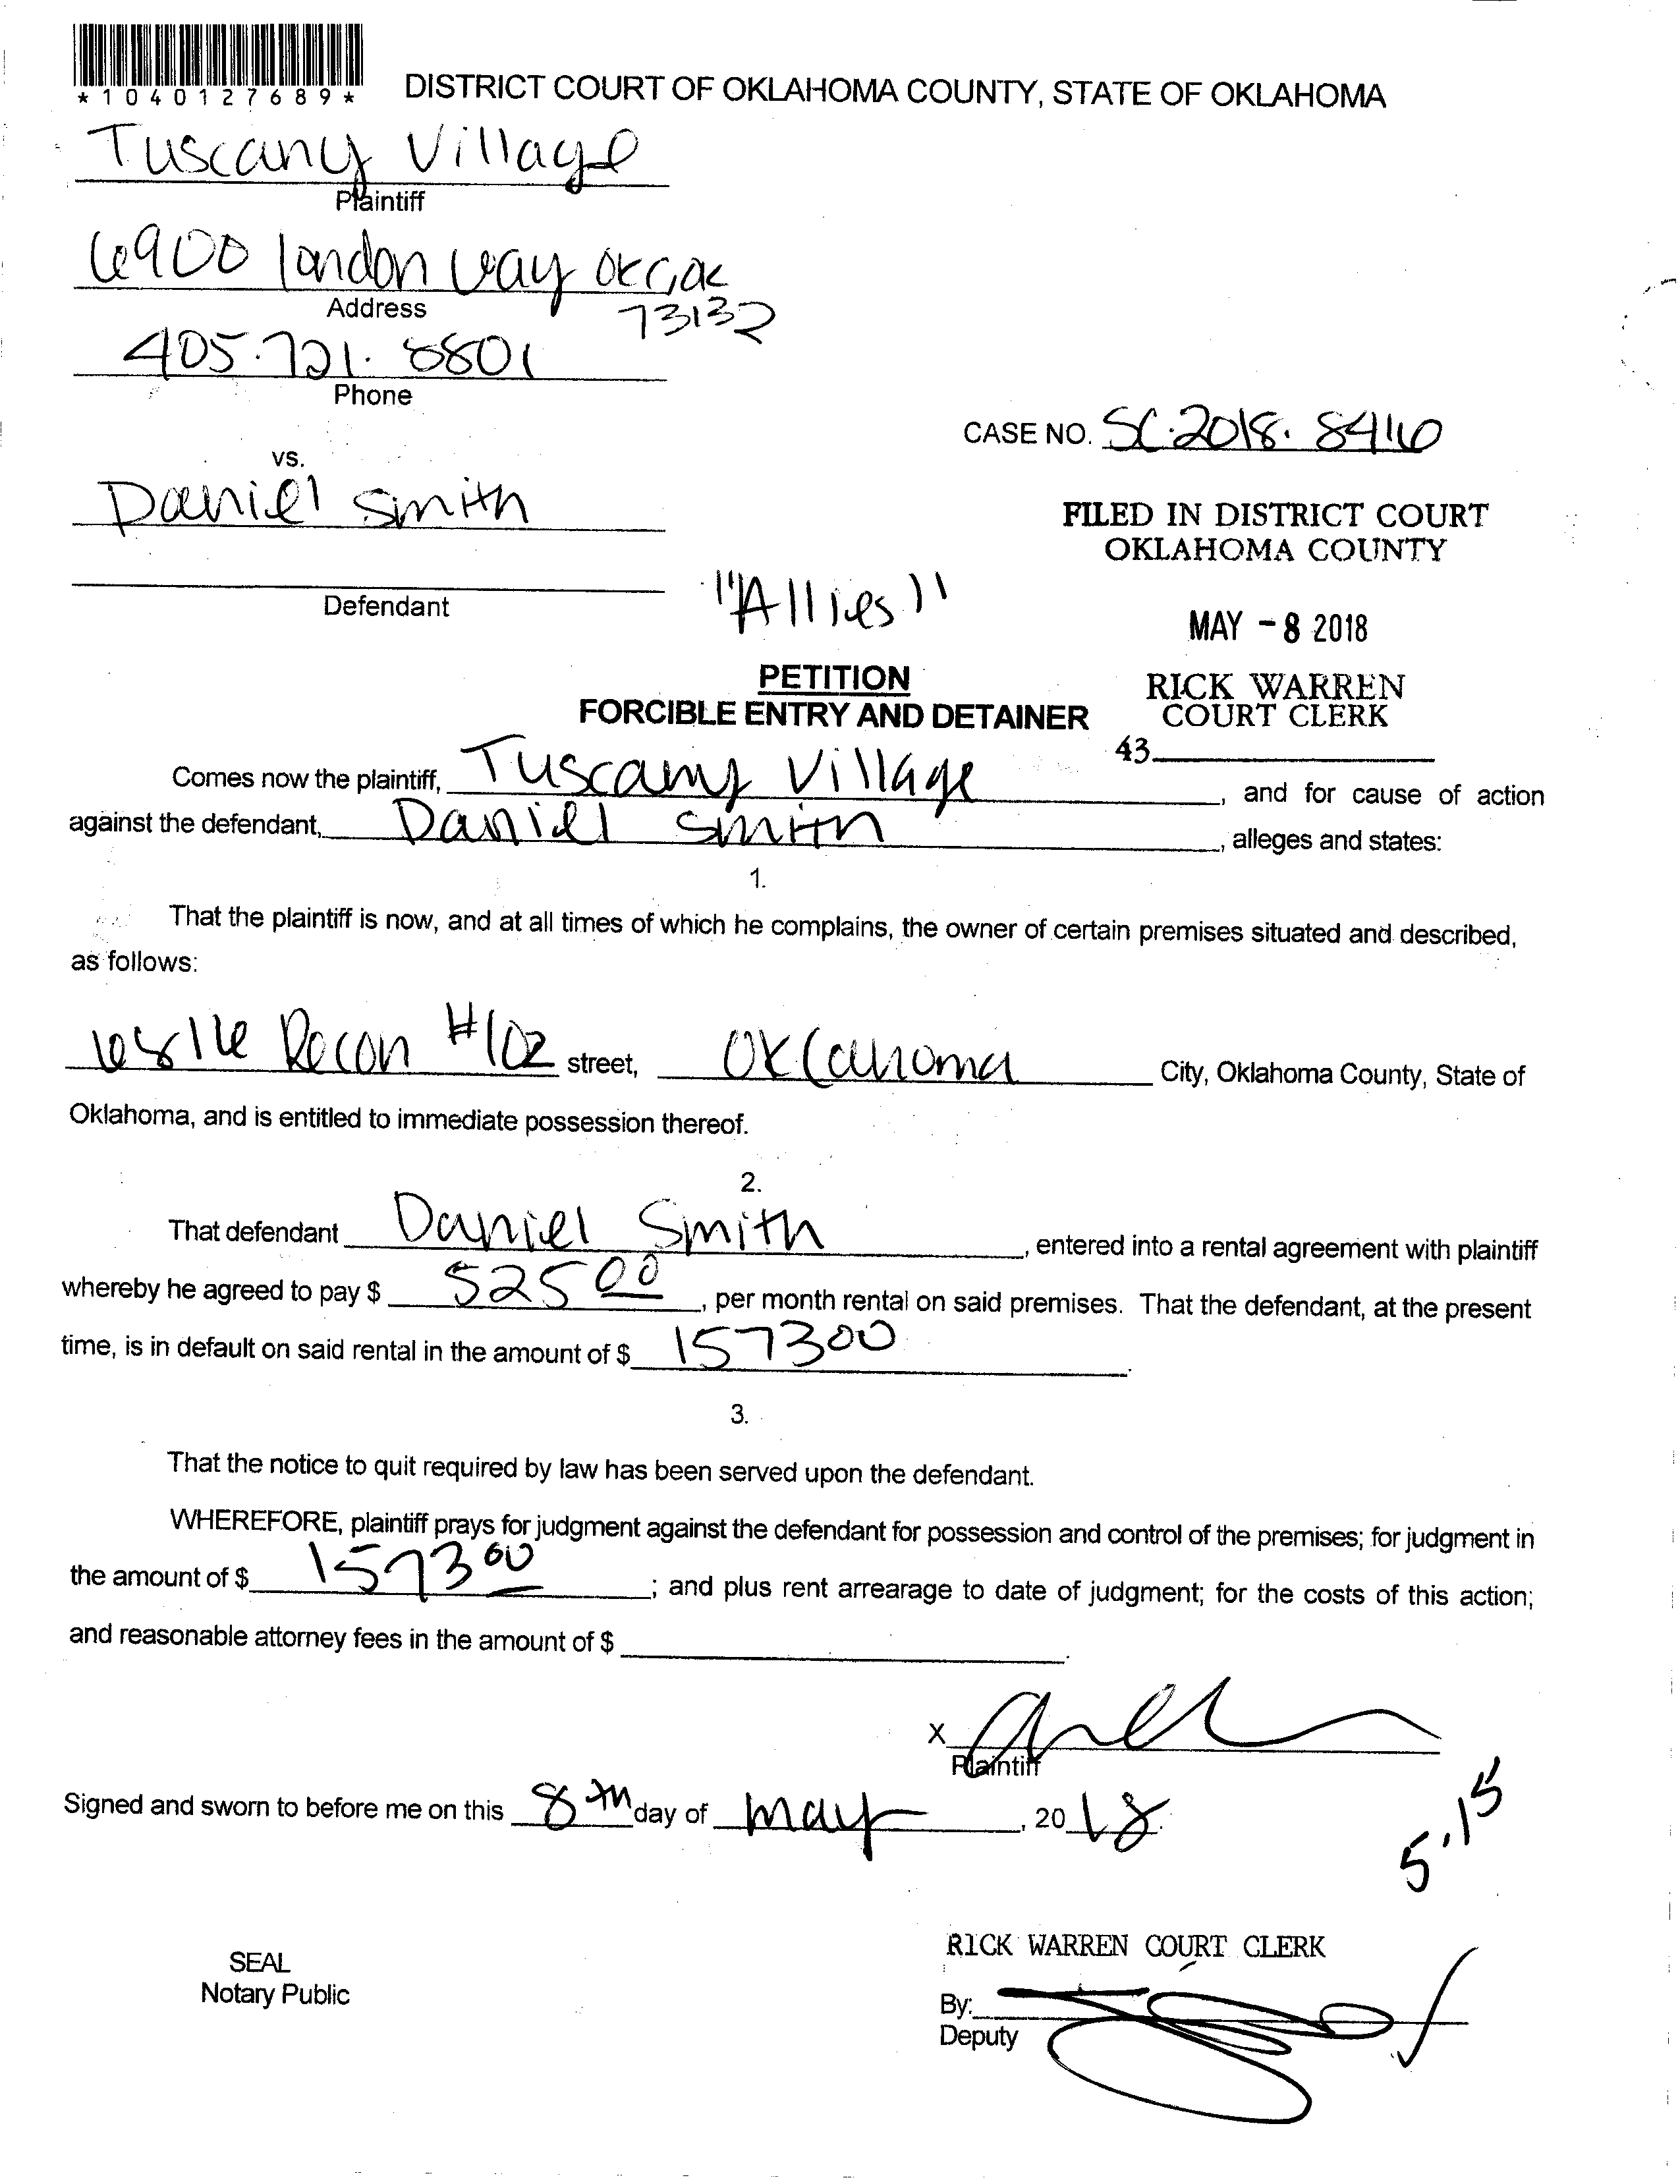 *1040127689*
DISTRICT COURT OF OKLAHOMA COUNTY, STATE OF OKLAHOMA
Tuscany Village
Plaintiff
6900 london way OKC, OK
Address
73132
405.721.8801
Phone
CASE NO. SC.2018.8416
vs.
Daniel Smith
FILED IN DISTRICT COURT
OKLAHOMA COUNTY
Defendant
"Allies"
MAY -8 2018
PETITION
FORCIBLE ENTRY AND DETAINER
RICK WARREN
COURT CLERK
43
Comes now the plaintiff, Tuscany Village, and for cause of action
against the defendant, Daniel Smith, alleges and states:
1.
That the plaintiff is now, and at all times of which he complains, the owner of certain premises situated and described,
as follows:
Recon #102 street, Oklahoma City, Oklahoma County, State of
Oklahoma, and is entitled to immediate possession thereof.
2.
That defendant Daniel Smith, entered into a rental agreement with plaintiff
whereby he agreed to pay $ 525 00, per month rental on said premises. That the defendant, at the present
time, is in default on said rental in the amount of $ 1573 00.
3.
That the notice to quit required by law has been served upon the defendant.
WHEREFORE, plaintiff prays for judgment against the defendant for possession and control of the premises; for judgment in
the amount of $ 1573 00; and plus rent arrearage to date of judgment; for the costs of this action;
and reasonable attorney fees in the amount of $ .
X
Plaintiff
Signed and sworn to before me on this 8th day of may, 20 18.
5.15
RICK WARREN COURT CLERK
SEAL
Notary Public
By:
Deputy